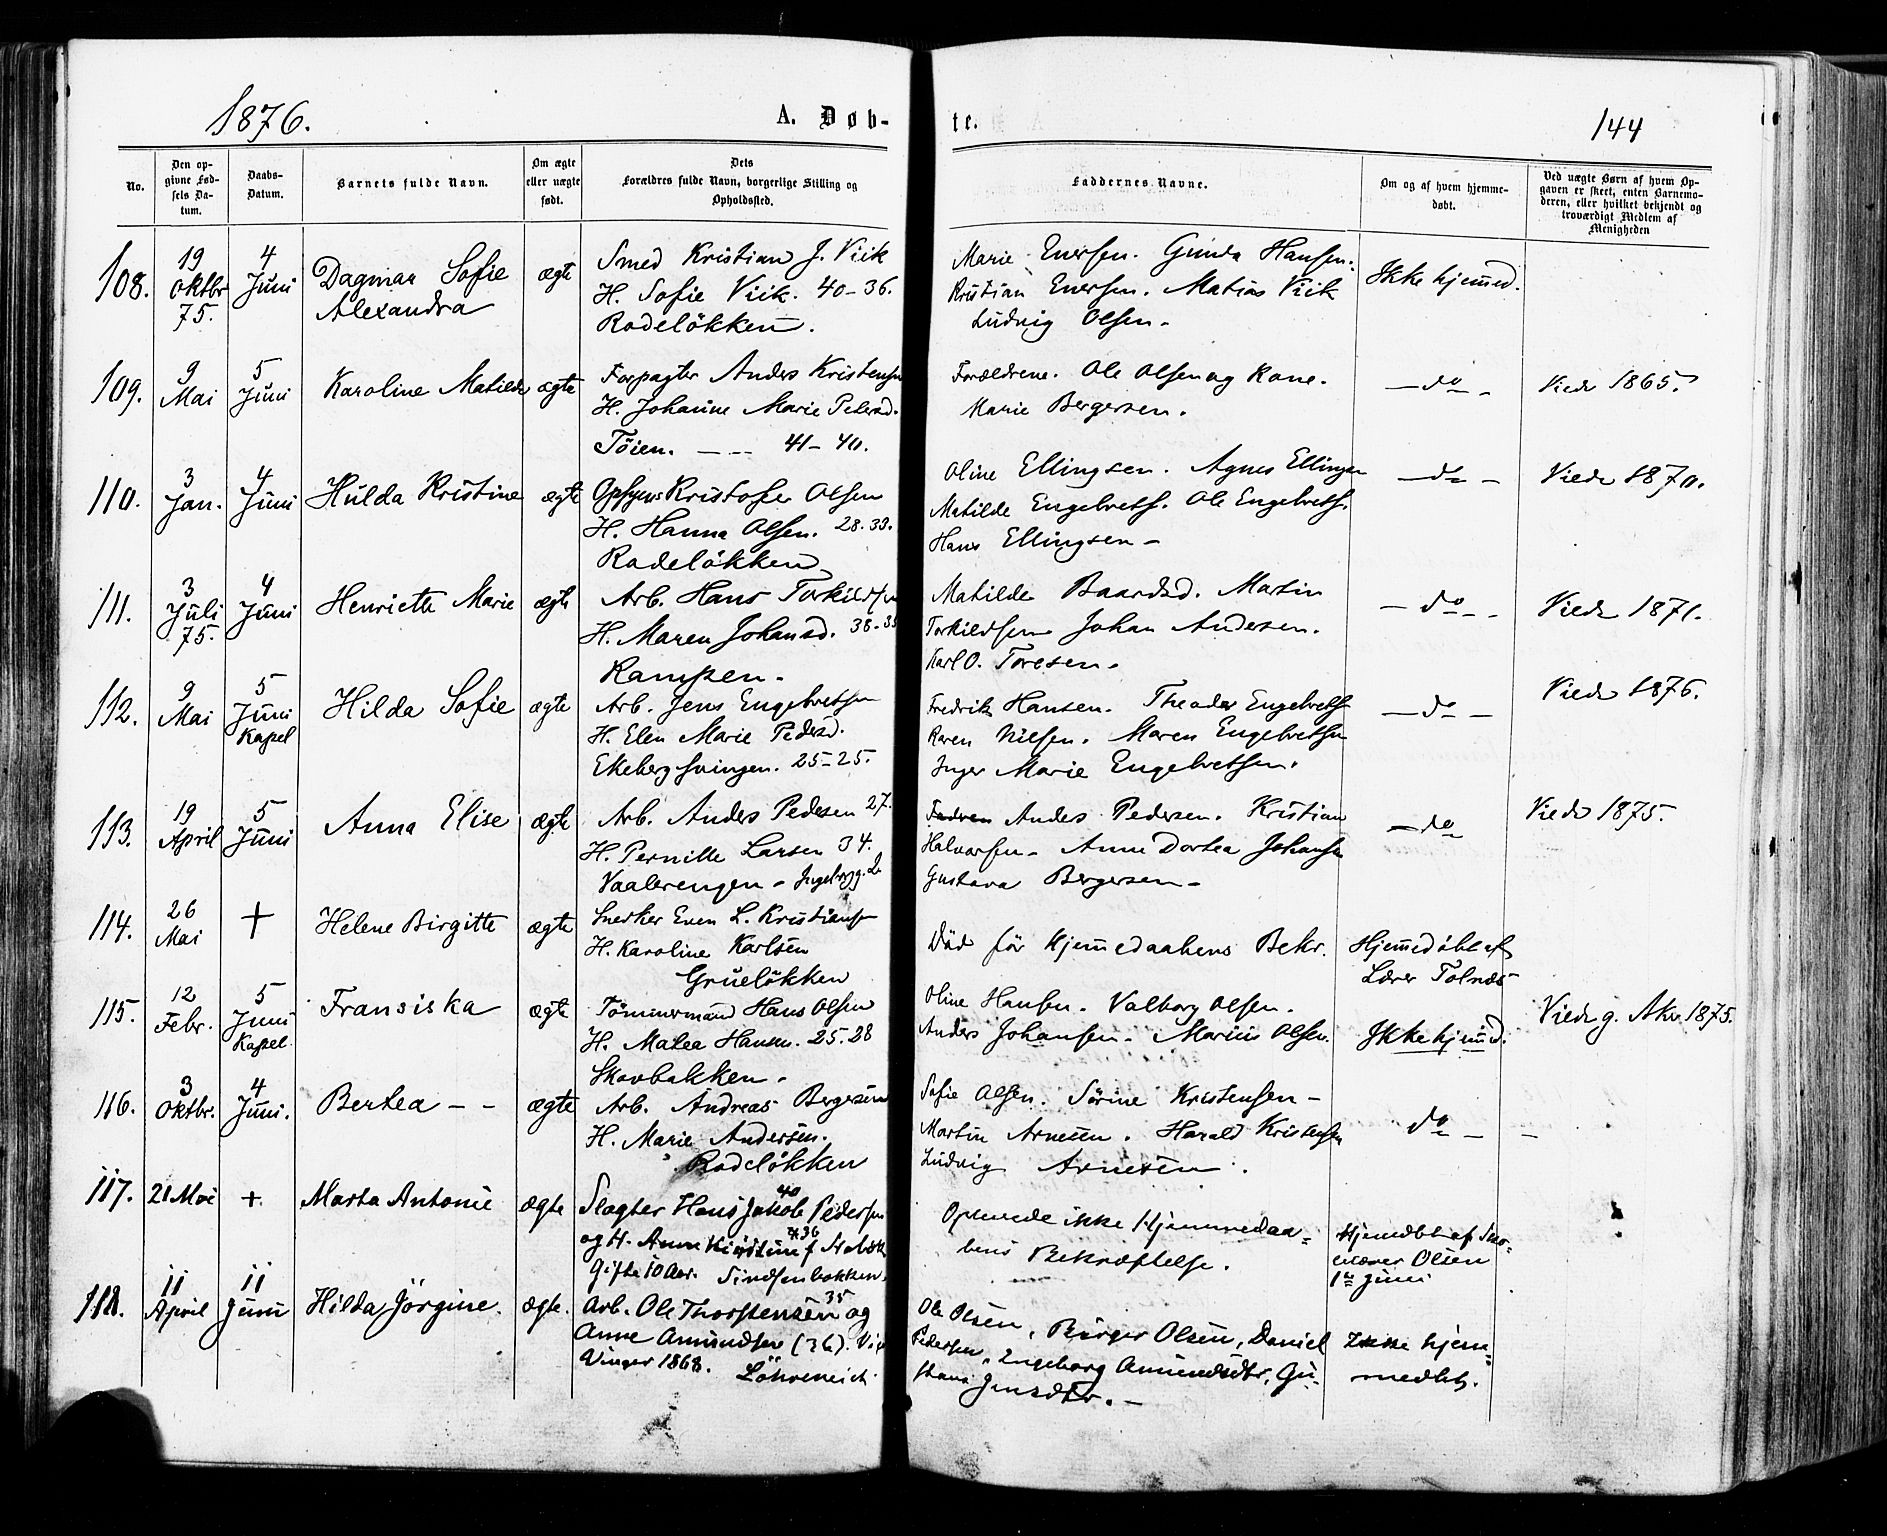 1876.
A. Døb-
te.
144
No.
Den op-
givne Fød-
sels Da-
tum.
Daabs-
Datum.
Barnets fulde Navn.
Om ægte
eller uægte
født.
Dets
Forældres fulde Navn, borgerlige Stilling og
Opholdssted.
Faddernes Navne.
Om og af hvem hjemme-
døbt.
Ved uægte Børn af hvem Op-
gaven er skeet, enten Barnemo-
deren, eller hvilket bekjendt og
troværdigt Medlem af
Menigheden
108.
19
Oktbr
75.
4
Juni
Dagmar Sofie
Alexandra
ægte
Smed Kristian J. Viik
H. Sofie Viik. 40-36.
Rodeløkken.
Marie Enersen. Gunda Hansen.
Kristian Enersen. Matias Viik
Ludvig Olsen -
Ikke hjemmed.
109.
9
Mai
5
Juni
Karoline Matilde
ægte
Forpagter Anders Kristensen
H. Johanne Marie Petersd.
Tøien. - - - 41-40.
Forældrene. Ole Olsen og Kone.
Marie Bergersen.
- do -
Viede 1865.
110.
3
Jan.
4
Juni
Hulda Kristine
ægte
Opsyns Kristofer Olsen
H. Hanna Olsen. 28-33.
Rodeløkken
Oline Ellingsen. Agnes Ellingsen
Matilde Engebrets. Ole Engebrets.
Hans Ellingsen -
- do -
Viede 1870.
111.
3
Juli
75.
4
Juni
Henriette Marie
ægte
Arb. Hans Torkildsen
H. Maren Johansd. 38-35
Kampen.
Matilde Baardsd. Martin
Torkildsen Johan Andersen.
Karl O. Toresen.
- do - -
Viede 1871.
112.
9
Mai
5
Juni
Kapel
Hilda Sofie
ægte
Arb. Jens Engebretsen
H. Elen Marie Pedersd.
Ekebergsvingen. 25-25.
Fredrik Hansen. Theodor Engebrets
Karen Nilsen. Maren Engebretsen
Inger Marie Engebretsen.
- do -
Viede 1876.
113.
19
April
5
Juni
Anna Elise
ægte
Arb. Anders Pedersen 27.
H. Pernille Larsen 34.
Vaalerengen -
Fadren Anders Pedersen. Kristian
Halvorsen - Anne Dortea Johansen
Gustava Bergersen -
- do
Viede 1875.
114.
26
Mai
+
Helene Birgitte
ægte
Snerker Even L. Kristians
H. Karoline Karlsen
Grueløkken
Død før Hjemmedaabens Bekr.
Hjemmedøbt af
Lærer Tolnæs
115.
12
Febr.
5
Juni
Kapel
Fransiska
ægte
Tømmermand Hans Olsen
H. Matea Hansen. 25.28
Skovbakken -
Oline Hansen. Valborg Olsen.
Anders Johansen. Marius Olsen.
Ikke hjemmed.
Viede g. Aker 1875.
116.
3
Oktbr.
4
Juni.
Bertea - -
ægte
Arb. Andreas Bergersen
H. Marie Andersen.
Rodeløkken
Sofie Olsen. Sørine Kristensen -
Martin Arnesen. Harald Kristensen
Ludvig Arnesen.
do - -
117.
21 Mai
+
Marta Antonie
ægte
Slagter Hans Jakob Pedersen
40
og H. Anne Kirstine
36
Gifte 10 Aar. Sinsenbakken.
Oplevede ikke Hjemmedaa-
bens Bekræftelse.
Hjemdøbt af Sko-
lelærer Olsen
1ste Juni
118.
11
April
11
Juni
Hilda Jørgine.
ægte.
Arb. Ole Thorstensen 35 og
Anne Amundsen (36). Vi
Vinger 1868.
Ole Olsen, Børger Olsen, Daniel
Pedersen, Engeborg Amundsdtr, Gu-
stava Jensdtr. -
Ikke hjem-
medbt.